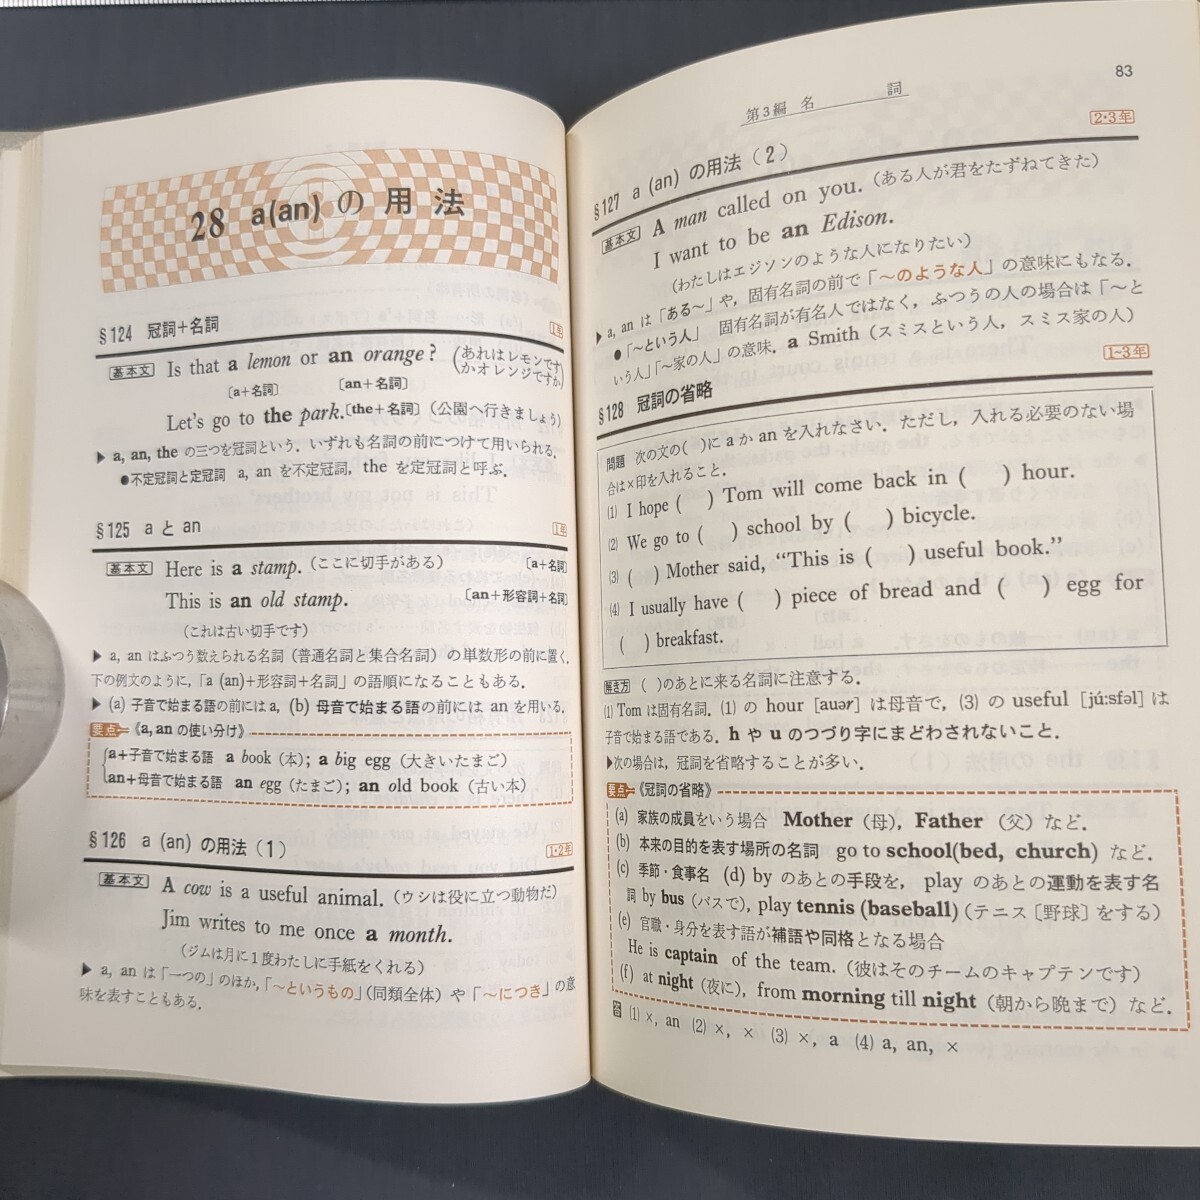 28 a(an) の用法
§124 冠詞+名詞 1年
基本文 Is that a lemon or an orange? (あれはレモンですかオレンジですか)
[a+名詞] [an+名詞]
Let's go to the park. [the+名詞] (公園へ行きましょう)
▶ a, an, the の三つを冠詞という. いずれも名詞の前につけて用いられる.
●不定冠詞と定冠詞 a, an を不定冠詞, the を定冠詞と呼ぶ.
§125 a と an 1年
基本文 Here is a stamp. (ここに切手がある) [a+名詞]
This is an old stamp. [an+形容詞+名詞]
(これは古い切手です)
▶ a, an はふつう数えられる名詞 (普通名詞と集合名詞) の単数形の前に置く.
下の例文のように, 「a (an)+形容詞+名詞」の語順になることもある.
▶ (a) 子音で始まる語の前には a, (b) 母音で始まる語の前には an を用いる.
要点 《a, an の使い分け》
a+子音で始まる語 a book (本); a big egg (大きいたまご)
an+母音で始まる語 an egg (たまご); an old book (古い本)
§126 a (an) の用法 (1) 1・2年
基本文 A cow is a useful animal. (ウシは役に立つ動物だ)
Jim writes to me once a month.
(ジムは月に1度わたしに手紙をくれる)
▶ a, an は「一つの」のほか, 「〜というもの」(同類全体) や「〜につき」の意
味を表すこともある.
83
第3編 名詞
2・3年
§127 a (an) の用法 (2)
基本文 A man called on you. (ある人が君をたずねてきた)
I want to be an Edison.
(わたしはエジソンのような人になりたい)
▶ a, an は「ある〜」や, 固有名詞の前で「〜のような人」の意味にもなる.
●「〜という人」 固有名詞が有名人ではなく, ふつうの人の場合は「〜と
いう人」「〜家の人」の意味. a Smith (スミスという人, スミス家の人)
1〜3年
§128 冠詞の省略
問題 次の文の( )に a か an を入れなさい. ただし, 入れる必要のない場
合は×印を入れること.
(1) I hope ( ) Tom will come back in ( ) hour.
(2) We go to ( ) school by ( ) bicycle.
(3) ( ) Mother said, "This is ( ) useful book."
(4) I usually have ( ) piece of bread and ( ) egg for
( ) breakfast.
解き方 ( )のあとに来る名詞に注意する.
(1) Tom は固有名詞. (1) の hour [auər] は母音で, (3) の useful [júːsfəl] は
子音で始まる語である. h や u のつづり字にまどわされないこと.
▶次の場合は, 冠詞を省略することが多い.
要点 《冠詞の省略》
(a) 家族の成員をいう場合 Mother (母), Father (父) など.
(b) 本来の目的を表す場所の名詞 go to school(bed, church) など.
(c) 季節・食事名 (d) by のあとの手段を, play のあとの運動を表す名
詞 by bus (バスで), play tennis (baseball) (テニス [野球] をする)
(e) 官職・身分を表す語が補語や同格となる場合
He is captain of the team. (彼はそのチームのキャプテンです)
(f) at night (夜に), from morning till night (朝から晩まで) など.
答 (1) ×, an (2) ×, × (3) ×, a (4) a, an, ×